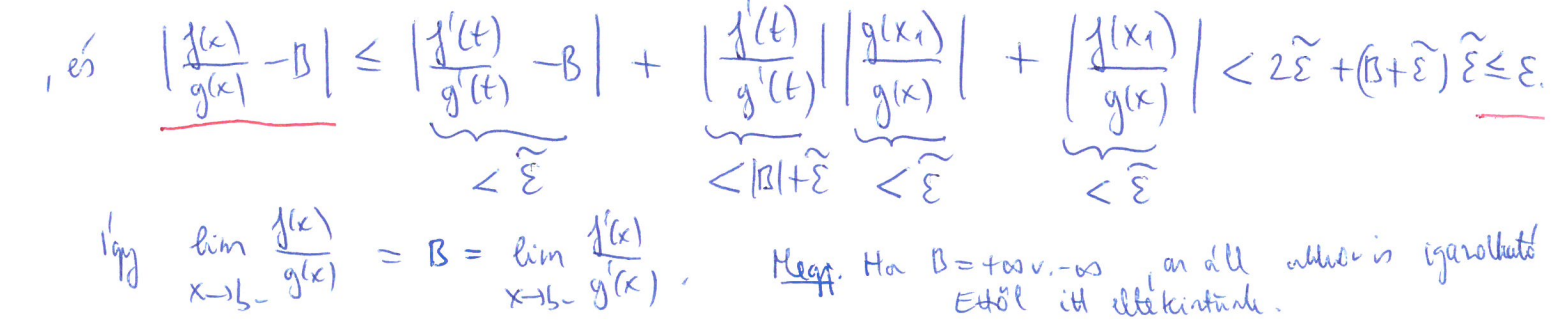 , és |f(x)/g(x) − B| ≤ |f'(t)/g'(t) − B| + |f'(t)/g'(t)| |g(x₁)/g(x)| + |f(x₁)/g(x)| < 2ε̃ + (B+ε̃) ε̃ ≤ ε.
< ε̃ < |B|+ε̃ < ε̃ < ε̃
Így lim_{x→b−} f(x)/g(x) = B = lim_{x→b−} f'(x)/g'(x). Megj. Ha B=+∞ v. −∞, az áll akkor is igazolható
Ettől itt eltekintünk.